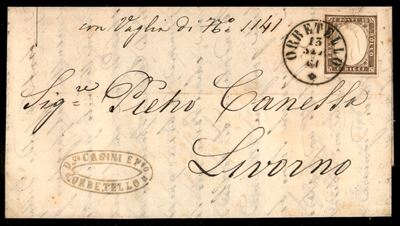 con Vaglia di N.º 1141
ORBETELLO
13
SET
61
Sig.re Pietro Canessa
Livorno
CASINI E F.io
ORBETELLO